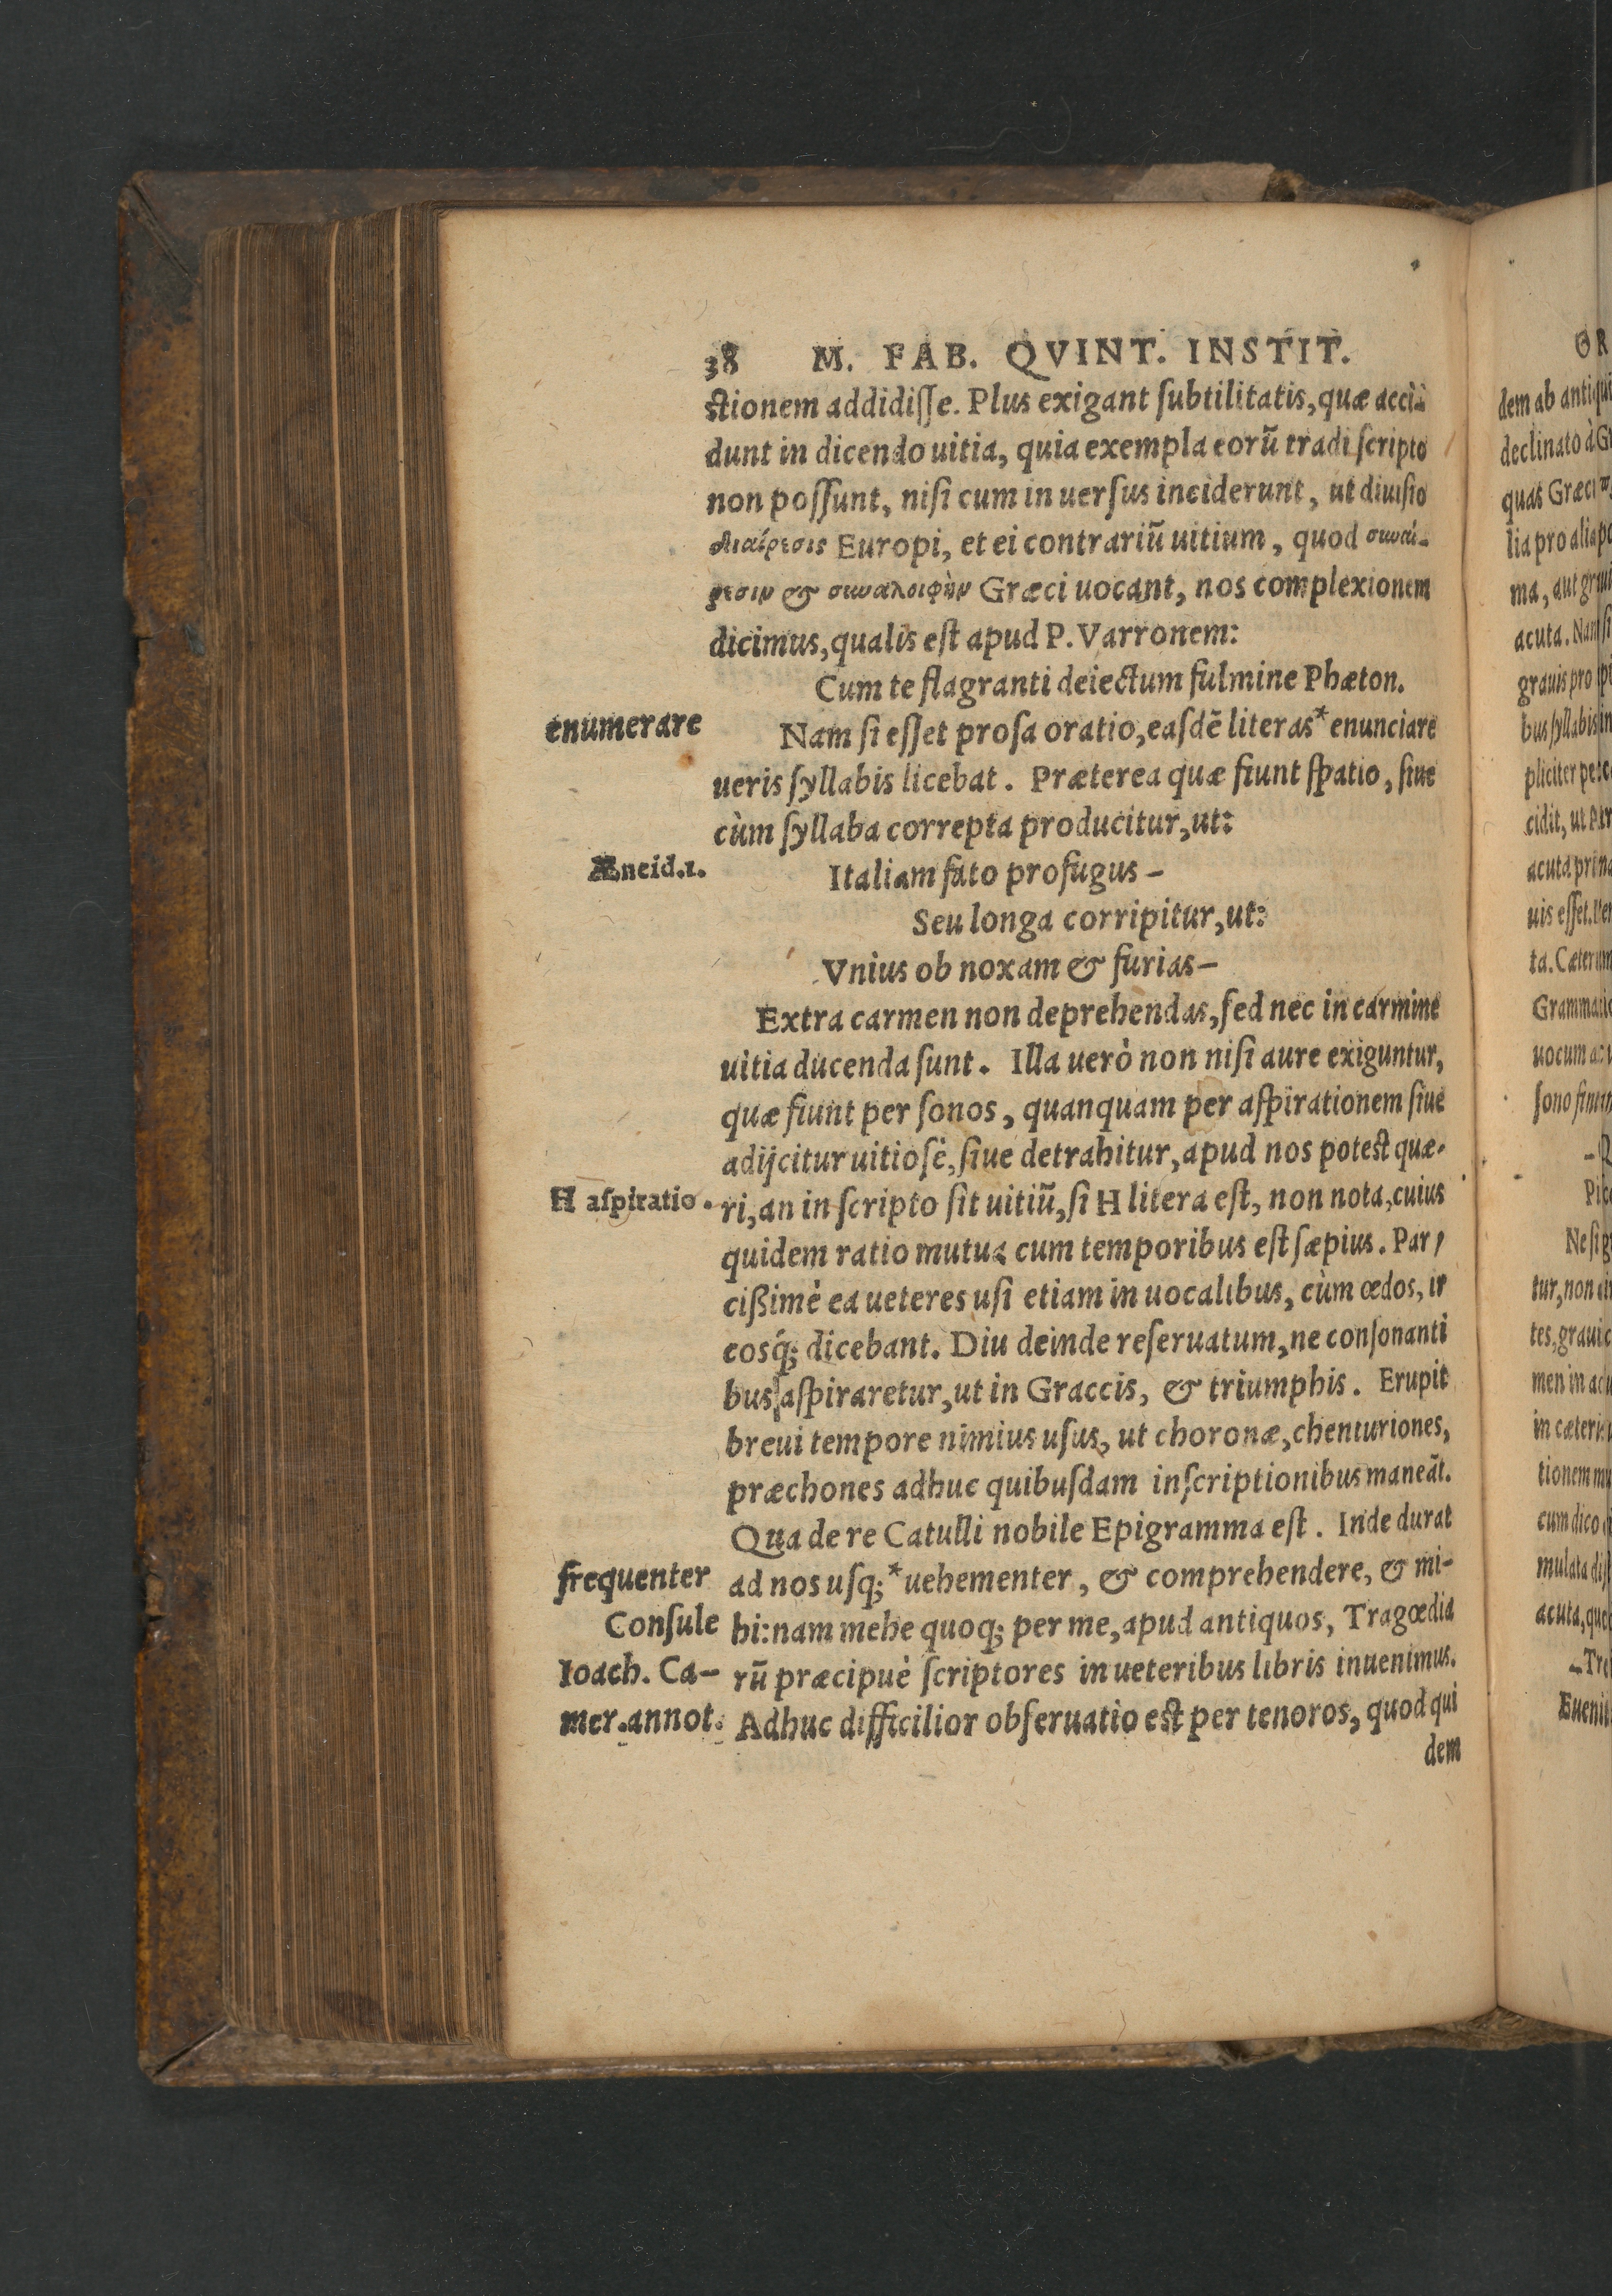 38 M. FAB. QVINT. INSTIT.
ctionem addidiſſe. Plus exigant ſubtilitatis, quæ acci-
dunt in dicendo uitia, quia exempla eorũ tradi ſcripto
non poſſunt, niſi cum in uerſus inciderunt, ut diuiſio
διαίρεσις Europi, et ei contrariũ uitium, quod συναί-
ρεσιν & συναλοιφὴν Græci uocant, nos complexionem
dicimus, qualis eſt apud P. Varronem:
Cum te flagranti deiectum fulmine Phæton.
enumerare
Nam ſi eſſet proſa oratio, eaſdẽ literas* enunciare
ueris ſyllabis licebat. Præterea quæ fiunt ſpatio, ſiue
cùm ſyllaba correpta producitur, ut:
Æneid.1.
Italiam fato profugus –
Seu longa corripitur, ut:
Vnius ob noxam & furias –
Extra carmen non deprehendas, ſed nec in carmine
uitia ducenda ſunt. Illa uerò non niſi aure exiguntur,
quæ fiunt per ſonos, quanquam per aſpirationem ſiue
adijcitur uitioſè, ſiue detrahitur, apud nos potest quæ-
H aſpiratio.
ri, an in ſcripto ſit uitiũ, ſi H litera eſt, non nota, cuius
quidem ratio mutua cum temporibus eſt ſæpius. Par-
cißimè ea ueteres uſi etiam in uocalibus, cùm œdos, ir
cosq́; dicebant. Diu deinde reſeruatum, ne conſonanti
bus aſpiraretur, ut in Graccis, & triumphis. Erupit
breui tempore nimius uſus, ut choronæ, chenturiones,
præchones adhuc quibuſdam inſcriptionibus maneãt.
Qua de re Catulli nobile Epigramma eſt. Inde durat
frequenter
ad nos uſq;* uehementer, & comprehendere, & mi-
Conſule
hi: nam mehe quoq; per me, apud antiquos, Tragœdia
Ioach. Ca-
rũ præcipuè ſcriptores in ueteribus libris inuenimus.
mer. annot.
Adhuc difficilior obſeruatio eſt per tenoros, quod qui
dem
OR
dem ab antiqui
declinato à G
quas Græci
lia pro alia po
ma, aut graui
acuta. Nam ſi
grauis pro
bus ſyllabis in
pliciter pecc
cidit, ut
acuta prima
uis eſſet.
ta. Cæterum
Grammatic
uocum
ſono finiri
Ne ſi
tur, non
tes, graui
men in
in cæteris
tionem mu
cum dico
mulata diſ
acuta, que
–Tro
Euenit